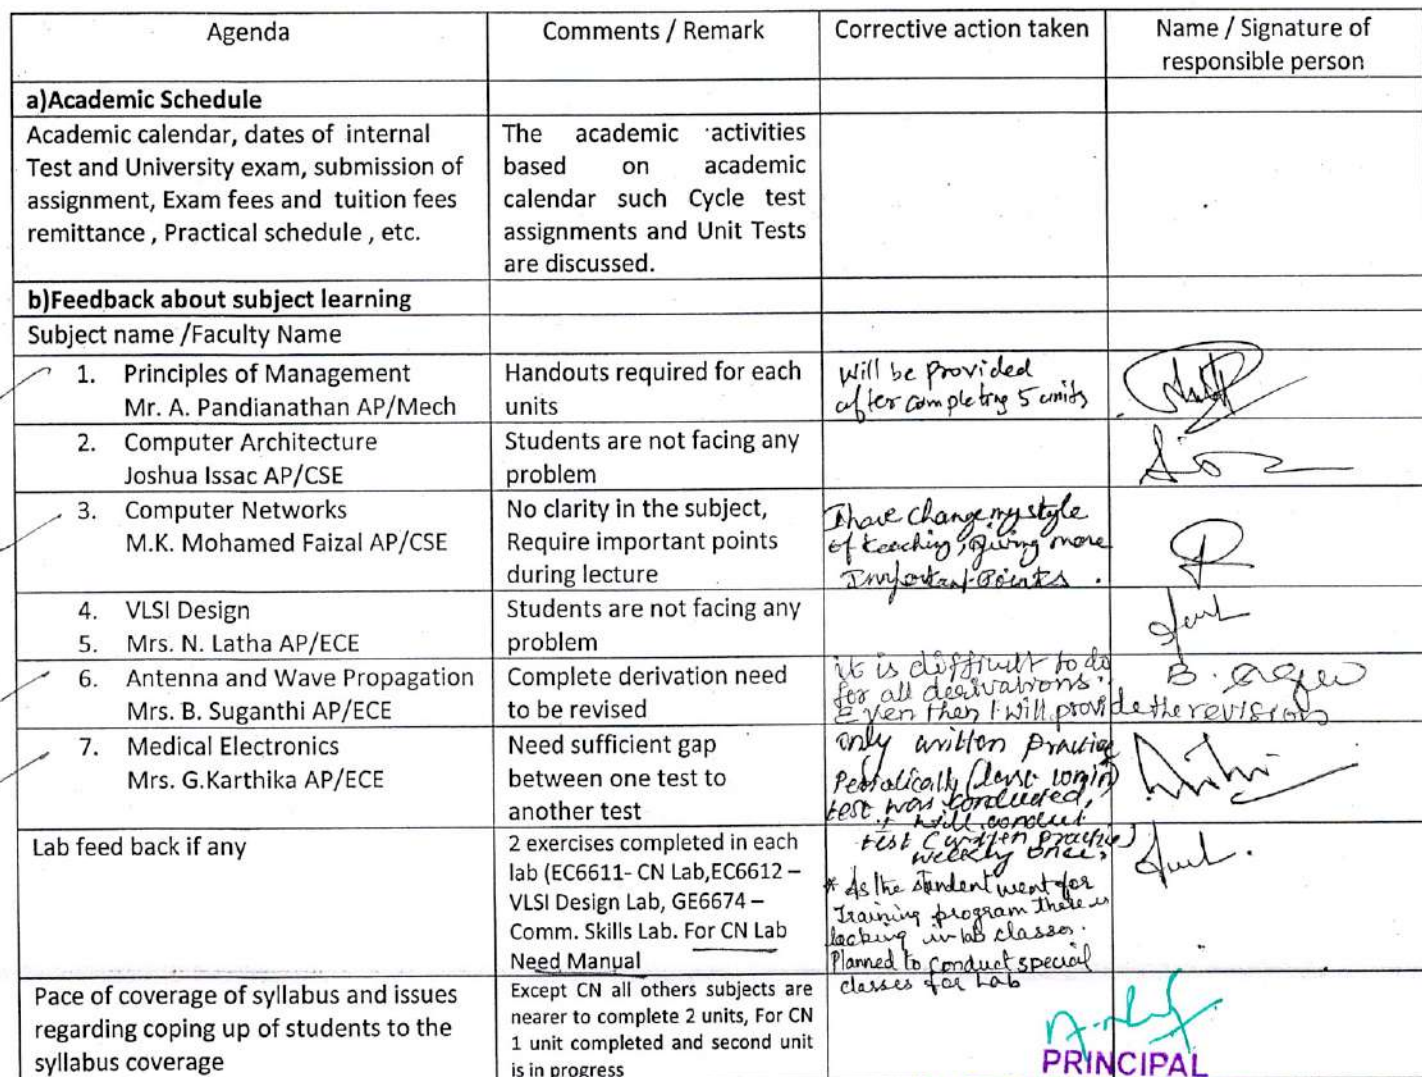 Agenda
Comments / Remark
Corrective action taken
Name / Signature of
responsible person
a)Academic Schedule
Academic calendar, dates of internal
Test and University exam, submission of
assignment, Exam fees and tuition fees
remittance , Practical schedule , etc.
The academic activities
based on academic
calendar such Cycle test
assignments and Unit Tests
are discussed.
b)Feedback about subject learning
Subject name /Faculty Name
1. Principles of Management
Mr. A. Pandianathan AP/Mech
Handouts required for each
units
Will be provided
after completing 5 units
2. Computer Architecture
Joshua Issac AP/CSE
Students are not facing any
problem
3. Computer Networks
M.K. Mohamed Faizal AP/CSE
No clarity in the subject,
Require important points
during lecture
I have change my style
of teaching, giving more
Important Points .
4. VLSI Design
5. Mrs. N. Latha AP/ECE
Students are not facing any
problem
6. Antenna and Wave Propagation
Mrs. B. Suganthi AP/ECE
Complete derivation need
to be revised
it is difficult to do
for all derivations.
Even then I will provide the revision
B.
7. Medical Electronics
Mrs. G.Karthika AP/ECE
Need sufficient gap
between one test to
another test
only written practice
Periodically
test was conducted,
I will conduct
test (written practice)
weekly once.
Lab feed back if any
2 exercises completed in each
lab (EC6611- CN Lab,EC6612 –
VLSI Design Lab, GE6674 –
Comm. Skills Lab. For CN Lab
Need Manual
* As the student went for
Training program there is
lacking in lab classes.
Planned to conduct special
classes for Lab
Pace of coverage of syllabus and issues
regarding coping up of students to the
syllabus coverage
Except CN all others subjects are
nearer to complete 2 units, For CN
1 unit completed and second unit
is in progress
PRINCIPAL